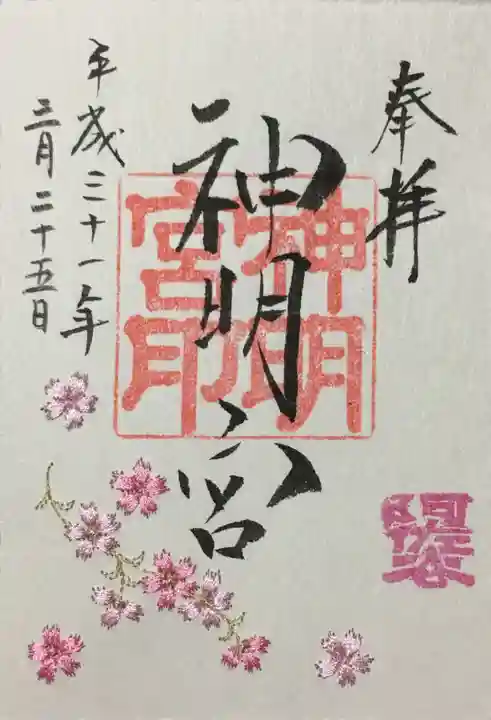 奉拝
神明宮
神明
宮印
阿佐ヶ谷
平成三十一年
三月二十五日